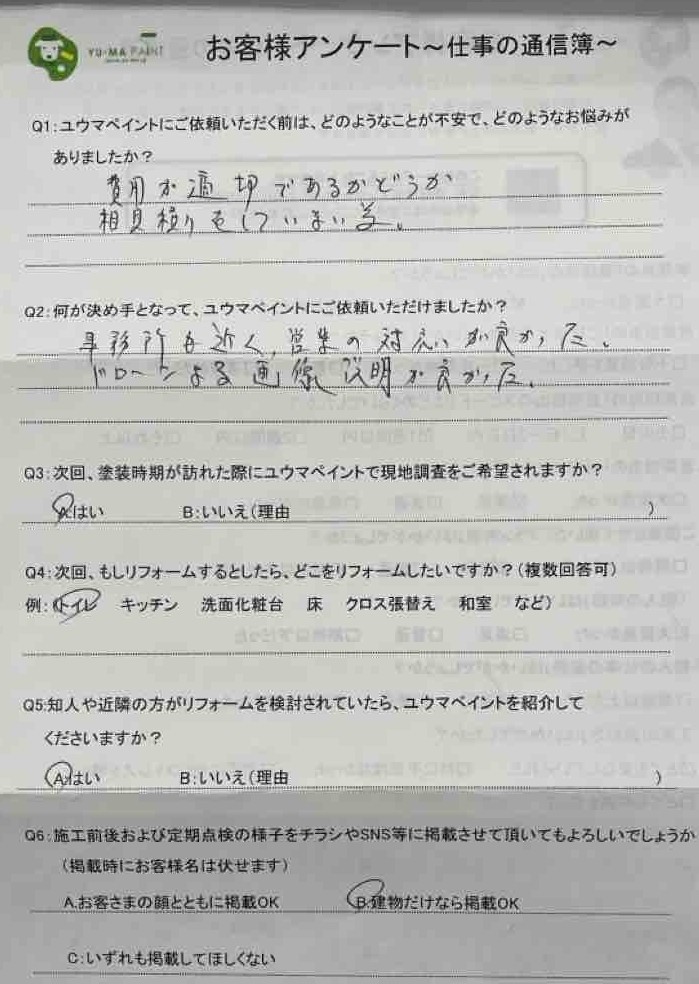 YU-MA PAINT
お客様アンケート～仕事の通信簿～
Q1:ユウマペイントにご依頼いただく前は、どのようなことが不安で、どのようなお悩みが
ありましたか？
費用が適切であるかどうか
相見積りをしていない為。
Q2:何が決め手となって、ユウマペイントにご依頼いただけましたか？
事務所も近く、営業の対応が良かった。
ドローンよる画像説明が良かった。
Q3:次回、塗装時期が訪れた際にユウマペイントで現地調査をご希望されますか？
A:はい B:いいえ（理由 ）
Q4:次回、もしリフォームするとしたら、どこをリフォームしたいですか？（複数回答可）
例：（トイレ キッチン 洗面化粧台 床 クロス張替え 和室 など）
Q5:知人や近隣の方がリフォームを検討されていたら、ユウマペイントを紹介して
くださいますか？
A:はい B:いいえ（理由 ）
Q6:施工前後および定期点検の様子をチラシやSNS等に掲載させて頂いてもよろしいでしょうか
（掲載時にお客様名は伏せます）
A.お客さまの顔とともに掲載OK B.建物だけなら掲載OK
C:いずれも掲載してほしくない